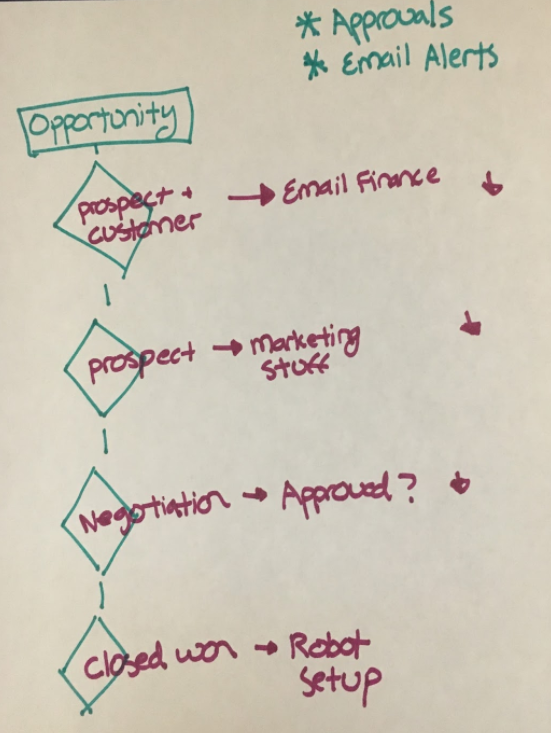 * Approvals
* Email Alerts
Opportunity
prospect + → Email Finance ↓
customer
prospect → marketing ↓
stuff
Negotiation → Approved? ↓
closed won → Robot
setup